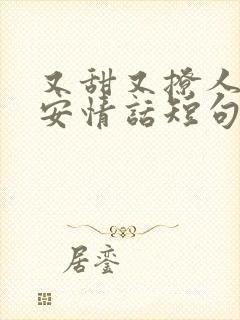 又甜又撩人
安情話短句
居鸾